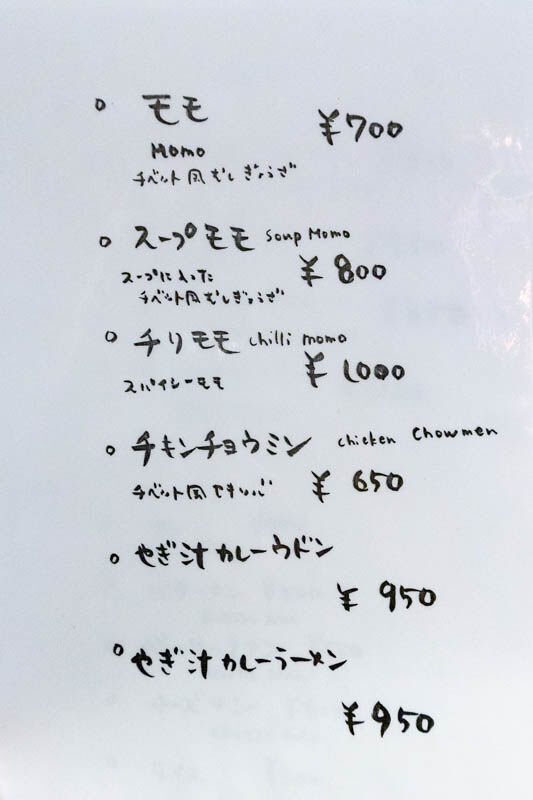 モモ ¥700
Momo
チベット風むしぎょうざ
スープモモ Soup Momo
スープに入った ¥800
チベット風むしぎょうざ
チリモモ chilli momo
スパイシーモモ ¥1000
チキンチョウミン chicken Chowmen
チベット風やきそば ¥650
やぎ汁カレーウドン
¥950
やぎ汁カレーラーメン
¥950